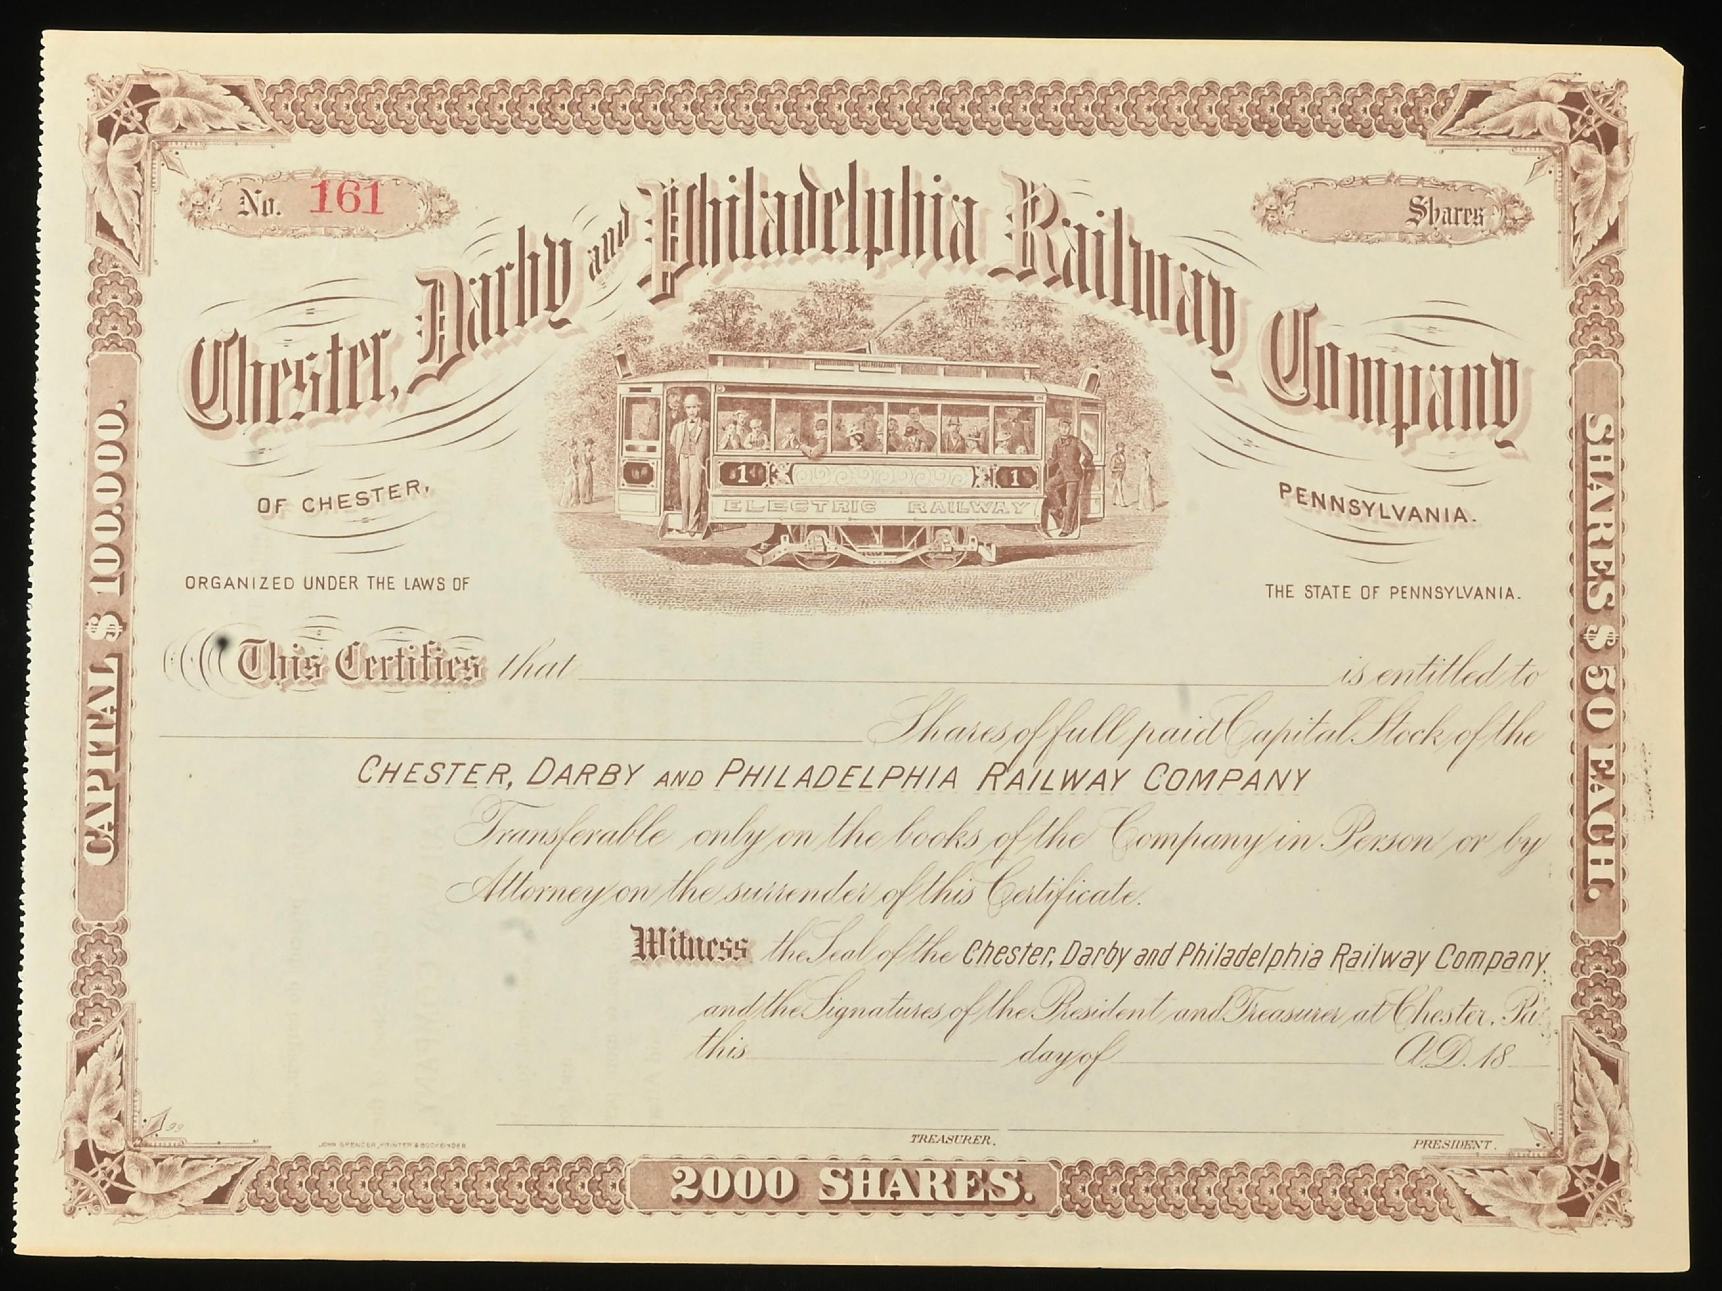 No. 161
Shares
Chester, Darby and Philadelphia Railway Company
OF CHESTER,
PENNSYLVANIA.
1 1
ELECTRIC RAILWAY
ORGANIZED UNDER THE LAWS OF
THE STATE OF PENNSYLVANIA.
CAPITAL $ 100.000.
SHARES $ 50 EACH.
This Certifies that is entitled to
Shares of full paid Capital Stock of the
CHESTER, DARBY AND PHILADELPHIA RAILWAY COMPANY
Transferable only on the books of the Company in Person or by
Attorney on the surrender of this Certificate.
Witness the Seal of the Chester, Darby and Philadelphia Railway Company,
and the Signatures of the President and Treasurer at Chester, Pa.
this day of A.D. 18
99
JOHN SPENCER, PRINTER & BOOKBINDER
TREASURER.
PRESIDENT.
2000 SHARES.